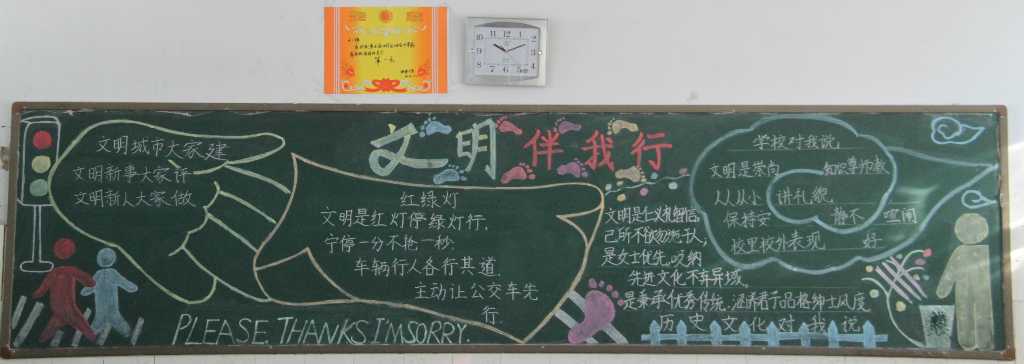 第一名
文明伴我行
文明城市大家建
文明新事大家评
文明新人大家做
红绿灯
文明是红灯停绿灯行.
宁停一分不抢一秒.
车辆行人各行其道.
主动让公交车先
行.
PLEASE.THANKS.I'M SORRY.
文明是仁义礼智信,
己所不欲勿施于人;
是女士优先,
先进文化不弃异域.
是秉承优秀传统,涵养君子品格绅士风度
历史文化对我说
学校对我说,
文明是崇向
人人从小 讲礼貌
保持安 静不 喧闹
校里校外表现 好